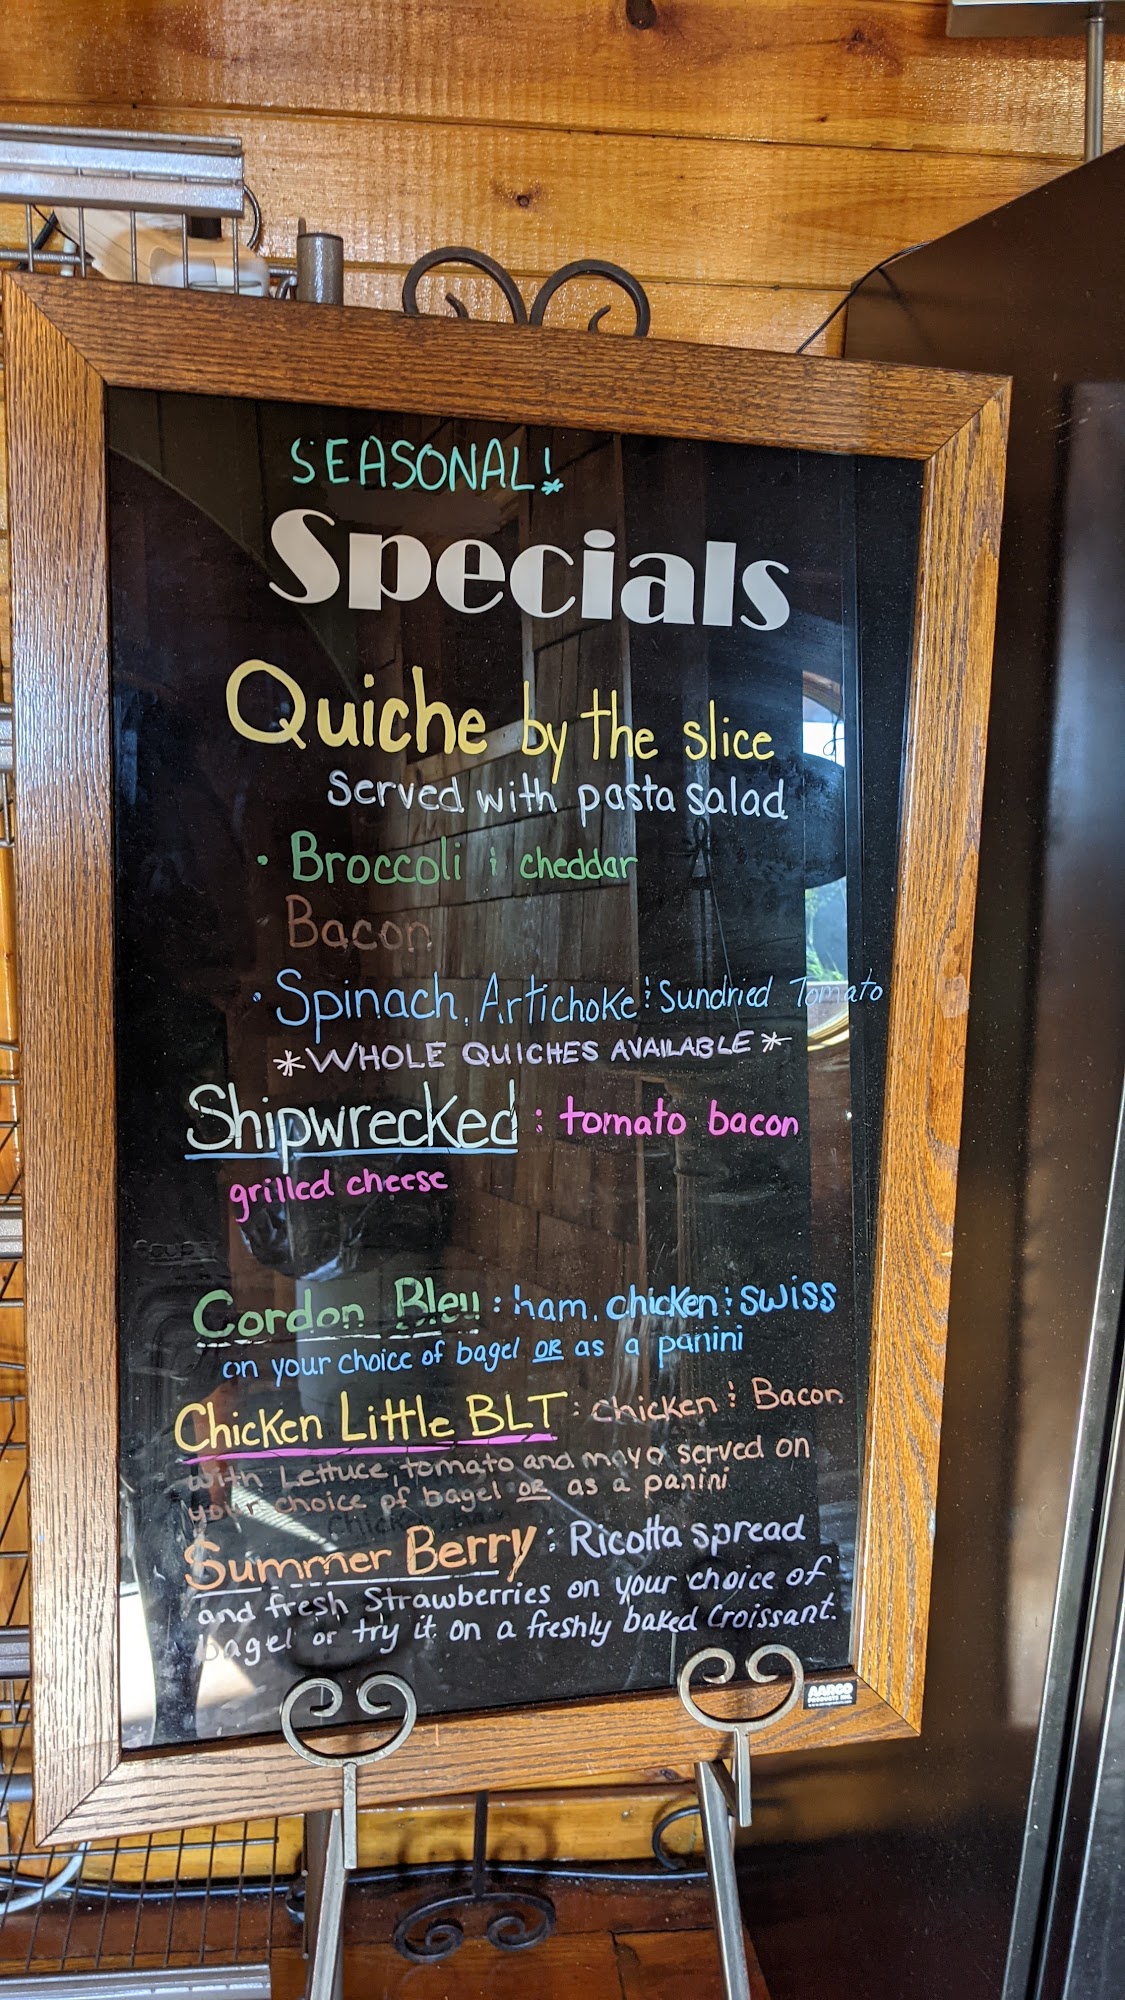 SEASONAL!
Specials
Quiche by the slice
served with pasta salad
• Broccoli & cheddar
Bacon
• Spinach, Artichoke & Sundried Tomato
*WHOLE QUICHES AVAILABLE*
Shipwrecked : tomato bacon
grilled cheese
Soups
Cordon Bleu : ham, chicken & swiss
on your choice of bagel OR as a panini
Chicken Little BLT : chicken & Bacon
with Lettuce, tomato and mayo served on
your choice of bagel OR as a panini
Summer Berry : Ricotta spread
and fresh Strawberries on your choice of
bagel or try it on a freshly baked Croissant.
AARCO
PRODUCTS INC.